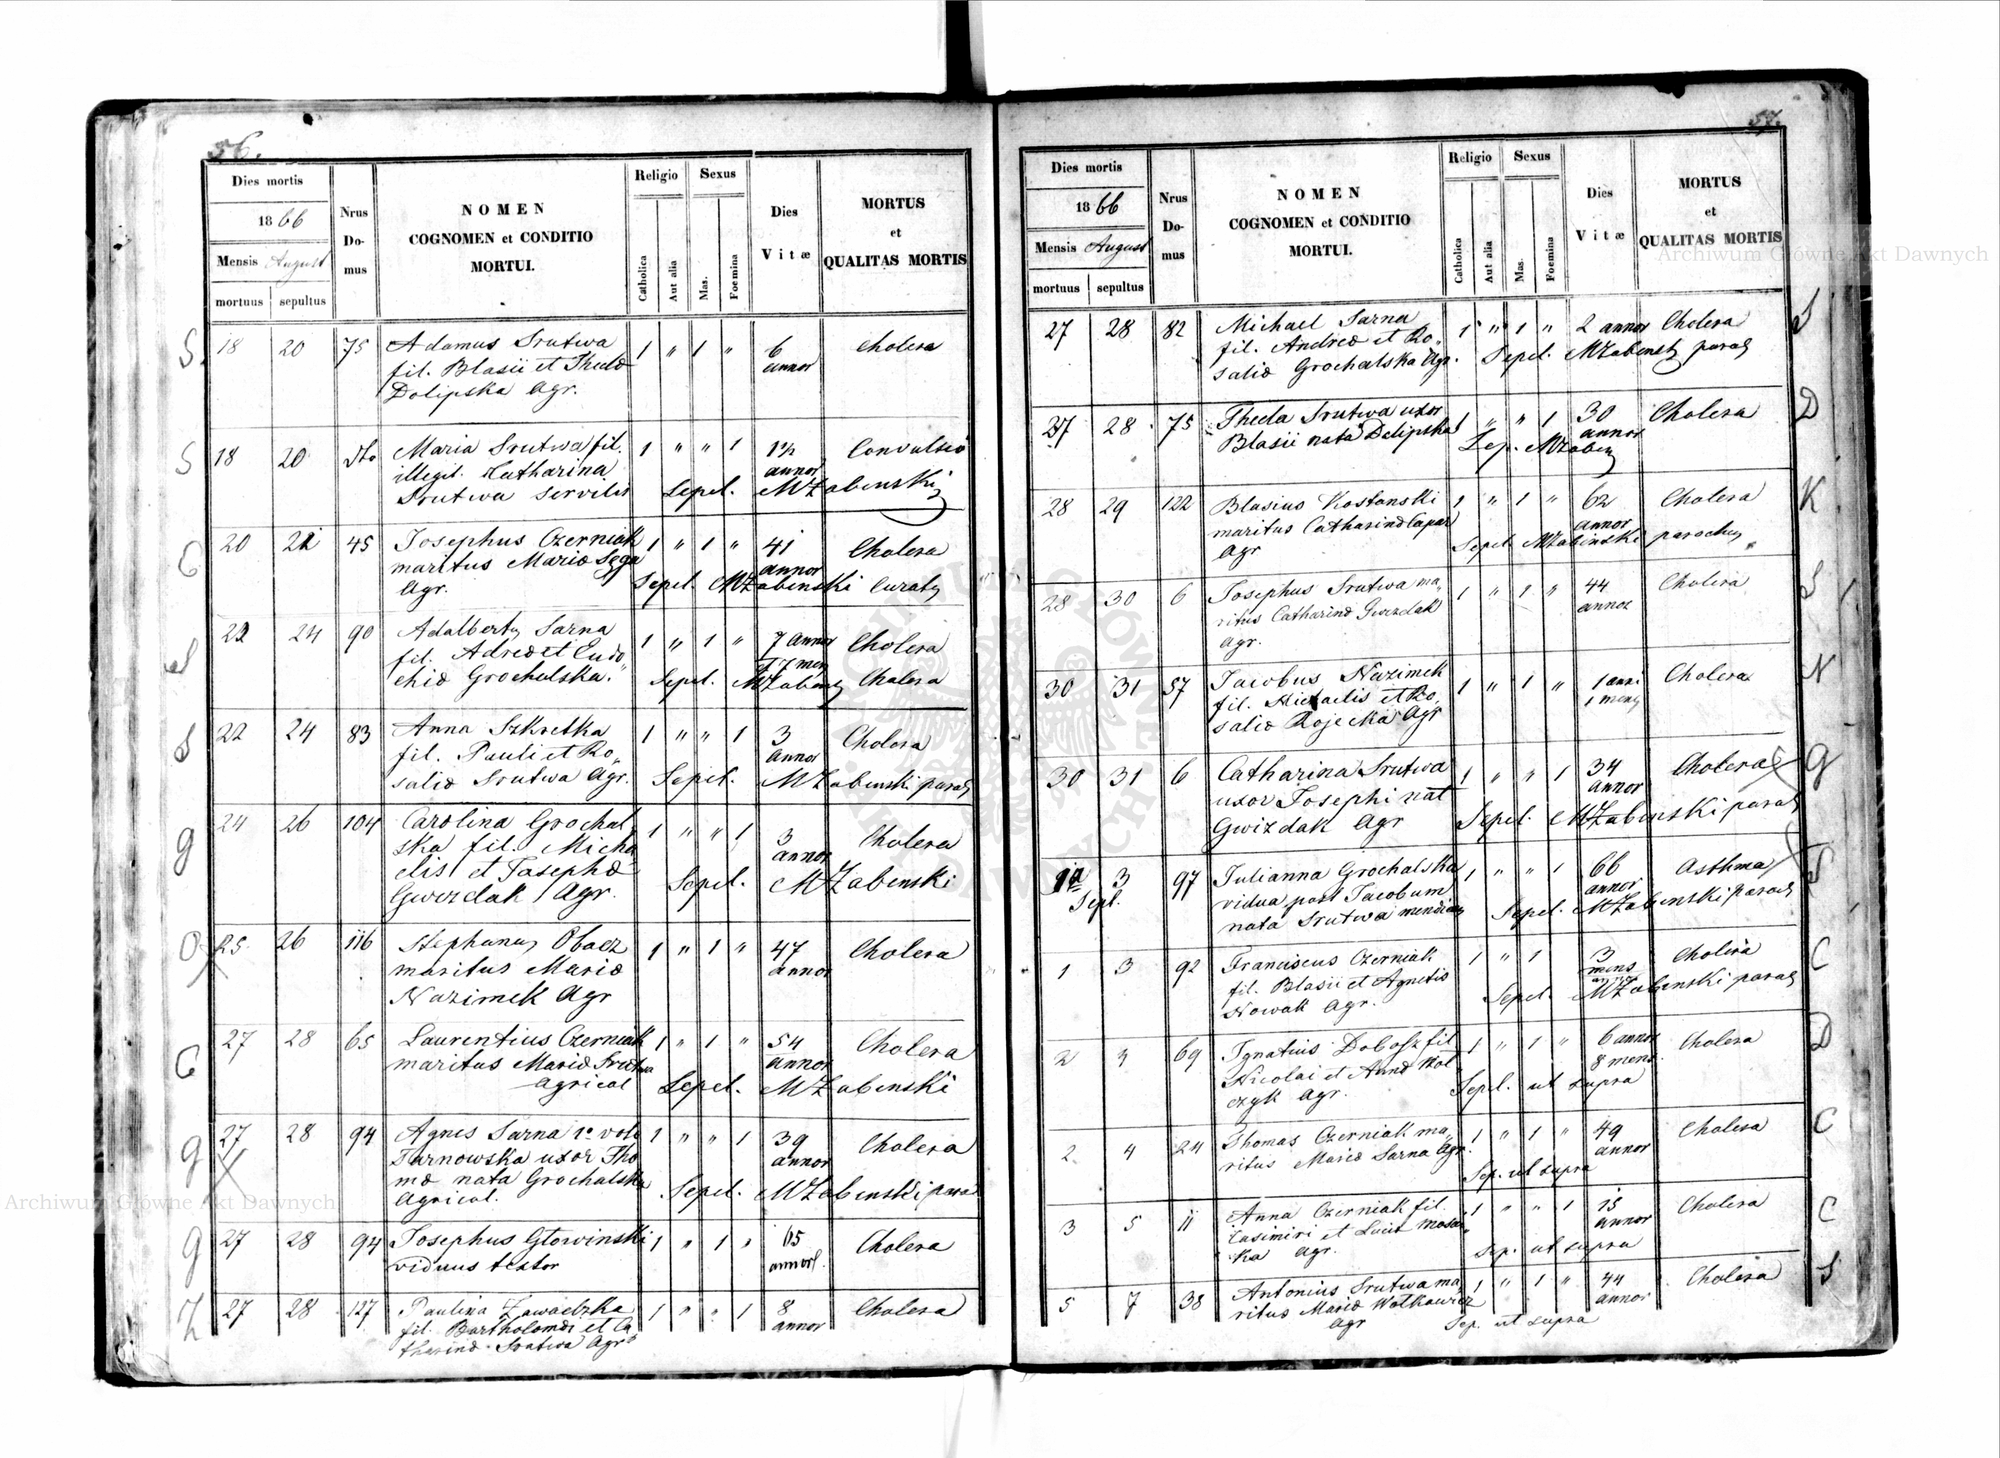 56.
Dies mortis
1866
Mensis August
mortuus sepultus
Nrus Do-mus
NOMEN
COGNOMEN et CONDITIO
MORTUI.
Religio
Catholica
Aut alia
Sexus
Mas.
Foemina
Dies
Vitæ
MORTUS
et
QUALITAS MORTIS
S. 18 20 75 Adamus Srutwa 1 " 1 " 6 Cholera
fil. Blasii et Thecle annor
Dolipska Agr.
S 18 20 dto Maria Srutwa fil. 1 " " 1 1½ Convulsio
illegit. Catharina annor
Srutwa servilis Sepel. MZabenski
C 20 21 45 Josephus Czerniak 1 " 1 " 41 Cholera
maritus Mariæ Sęga annor
Agr. Sepel. MZabenski Curatus
S 22 24 90 Adalbertus Sarna 1 " 1 " 7 annor Cholera
fil. Adreæ et Eudo" 7 men
chiæ Grochalska. Sepel. MZabensk Cholera
S 22 24 83 Anna Szkretka 1 " " 1 3 Cholera
fil. Pauli et Ro" annor
saliæ Srutwa Agr. Sepel. MZabenski paroch
G 24 26 104 Carolina Grochal 1 " " 1 3 Cholera
ska fil. Micha annor
elis et Josephæ Sepel. MZabenski
Gwizdak Agr.
O 25 26 116 Stephanus Obacz 1 " 1 " 47 Cholera
maritus Mariæ annor
Nazimek Agr
C 27 28 65 Laurentius Czerniak 1 " 1 " 54 Cholera
maritus Mariæ Srutwa annor
agricol Sepel. MZabenski
G 27 28 94 Agnes Sarna 1º voto 1 " " 1 39 Cholera
Tarnowska uxor Tho annor
mæ nata Grochalska Sepel. MZabenski paro
Agricol.
G 27 28 94 Josephus Głowinski 1 " 1 " 65 Cholera
viduus textor annor
Z 27 28 127 Paulina Zawadzka 1 " " 1 8 Cholera
fil. Bartholomæi et Ca annor
tharinæ Srutwa Agr
57.
Dies mortis
1866
Mensis August
mortuus sepultus
Nrus Do-mus
NOMEN
COGNOMEN et CONDITIO
MORTUI.
Religio
Catholica
Aut alia
Sexus
Mas.
Foemina
Dies
Vitæ
MORTUS
et
QUALITAS MORTIS
27 28 82 Michael Sarna 1 " 1 " 2 annor Cholera S
fil. Andreæ et Ro" Sepel. MZabensk paroch
saliæ Grochalska Agr.
27 28 75 Thecla Srutwa uxor 1 " " 1 30 Cholera D
Blasii nata Dolipska annor
Sep. MZaben
28 29 122 Blasius Kostanski 1 " 1 " 62 Cholera K
maritus Catharinæ Capar annor
Agr Sepel MZabinski parochus
28 30 6 Josephus Srutwa ma" 1 " 1 " 44 Cholera S
ritus Catharinæ Gwizdak annor
Agr.
30 31 57 Jacobus Nazimek 1 " 1 " 1 anni Cholera N
fil. Michaelis et Ro" 1 mens
saliæ Rojecka Agr
30 31 6 Catharina Srutwa 1 " " 1 34 Cholera G
uxor Josephi nat annor
Gwizdak Agr Sepel. MZabenski paroch
1a 3 97 Julianna Grochalska 1 " " 1 66 Asthma S
Sept. vidua post Jacobum annor
nata Srutwa mendicans Sepel. MZabenski paroch
1 3 92 Franciscus Czerniak 1 " 1 3 Cholera C
fil. Blasii et Agnetis mens
Nowak Agr. Sepel. MZabenski paroch
2 3 69 Ignatius Dobosz fil 1 " 1 " 6 annor Cholera D
Nicolai et Annæ Kol 8 mens
czyk Agr. Sepel. ut supra
2 4 24 Thomas Czerniak ma" 1 " 1 " 49 Cholera C
ritus Mariæ Sarna Agr. annor
Sep. ut supra
3 5 11 Anna Czerniak fil. 1 " " 1 15 Cholera C
Casimiri et Luciæ annor
ka Agr. Sep. ut supra
5 7 38 Antonius Srutwa ma" 1 " 1 " 44 Cholera S
ritus Mariæ Wolkowicz annor
Agr Sep. ut supra
Archiwum Główne Akt Dawnych
Archiwum Główne Akt Dawnych